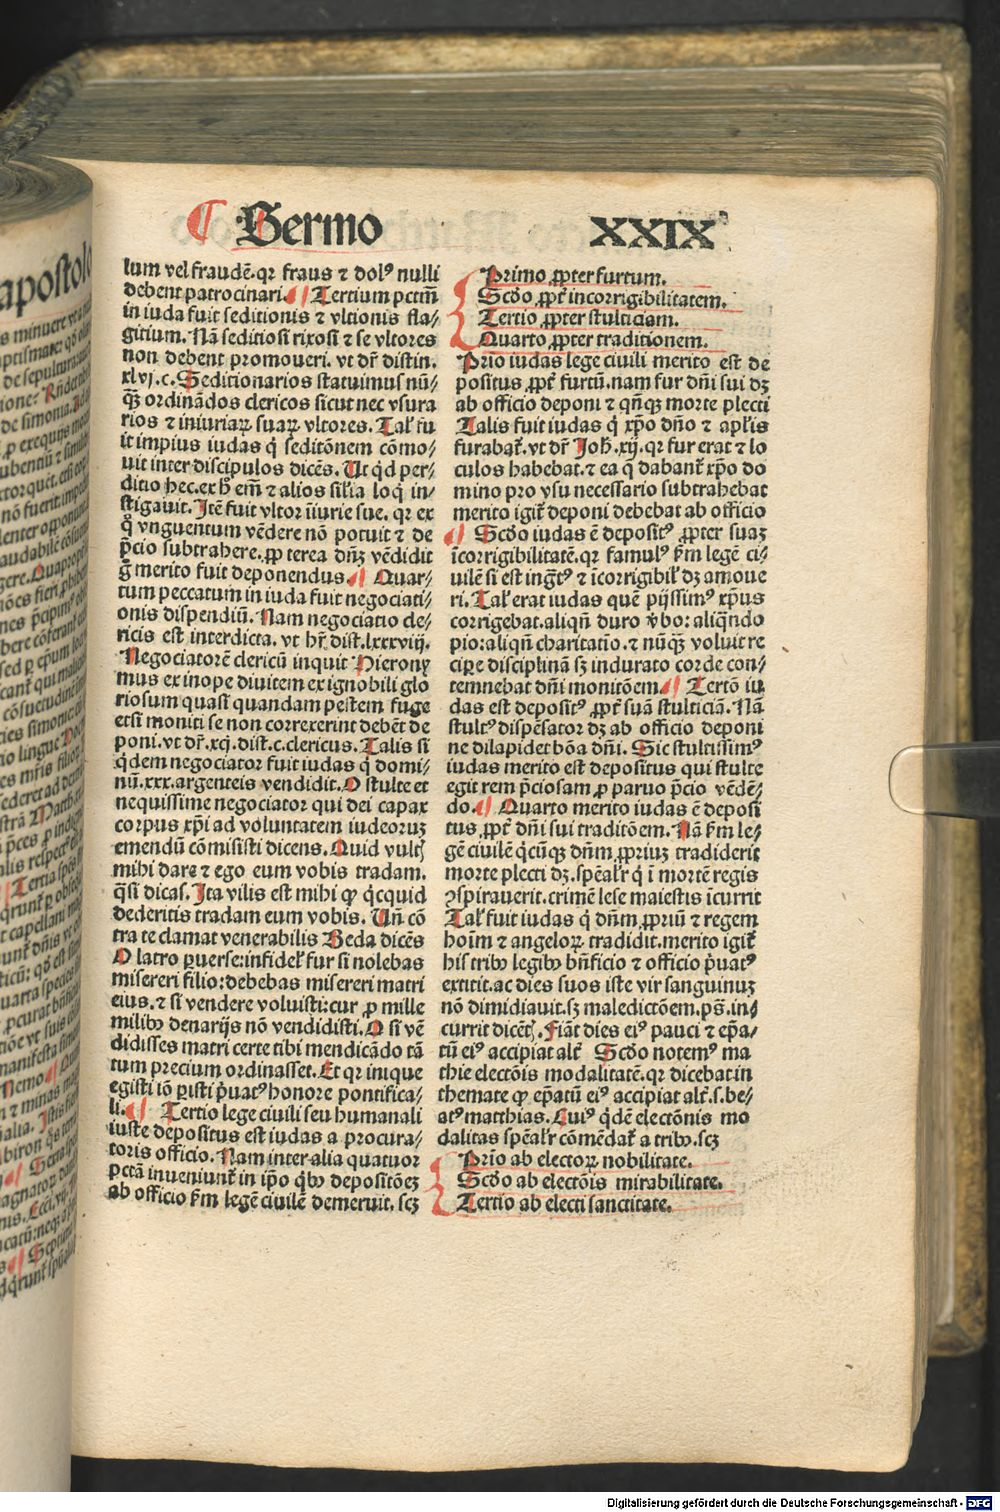 Sermo XXIX
lum vel fraudē. qr fraus ⁊ dolꝰ nulli
debent patrocinari. Tertium pctm̄
in iuda fuit seditionis ⁊ vltionis fla⸗
gitium. Nā seditiosi rixosi ⁊ se vltores
non debent promoueri. vt dr̄ distin.
xlvj. c. Seditionarios statuimus nū⸗
qꝫ ordinādos clericos sicut nec vsura
rios ⁊ iniuriaꝝ suaꝝ vltores. Tal' fu
it impius iudas q̇ seditōnem cōmo⸗
uit inter discipulos dicēs. Ut qd per⸗
ditio hec. ex h̄ em̄ ⁊ alios sil'ia loq̇ in⸗
stigauit. Itē fuit vltor īiurie sue. qr ex
q̊ vnguentum vēdere nō potuit ⁊ de
p̄cio subtrahere. ꝓpterea dn̄ꝫ vēdidit
g̊ merito fuit deponendus. Quar⸗
tum peccatum in iuda fuit negociati⸗
onis dispendiū. Nam negociatio cle⸗
ricis est interdicta. vt hr̄ dist. lxxxviij.
Negociatorē clericū inquit Hierony
mus ex inope diuitem ex ignobili glo
riosum quasi quandam pestem fuge
etsi moniti se non correxerint debēt de
poni. vt dr̄. xcj. dist. c. clericus. Talis si
q̇dem negociator fuit iudas q̇ domi⸗
nū. xxx. argenteis vendidit. O stulte et
nequissime negociator qui dei capax
corpus xp̄i ad voluntatem iudeoruꝫ
emendū cōmisisti dicens. Quid vultꝭ
mihi dare ⁊ ego eum vobis tradam.
q̄si dicas. Ita vilis est mihi ꝙ q̇cquid
dederitis tradam eum vobis. Un̄ cō
tra te clamat venerabilis Beda dicēs
O latro ꝑuerse: infidel' fur si nolebas
misereri filio: debebas misereri matri
eius. ⁊ si vendere voluisti: cur ꝓ mille
milibꝰ denarijs nō vendidisti. O si vē
didisses matri certe tibi mendicādo tā
tum precium ordinasset. Et qr inique
egisti iō ꝑisti ṗuatꝰ honore pontifica⸗
li. Tertio lege ciuili seu humanali
iuste depositus est iudas a procura⸗
toris officio. Nam inter alia quatuor
pctā inueniunt̄ in ip̄o qbꝰ depositōeꝫ
ab officio ẜm legē ciuilē demeruit. scꝫ
Primo ꝓpter furtum.
Scd̄o ꝓpt̄ incorrigibilitatem.
Tertio ꝓpter stulticiam.
Quarto ꝓpter traditionem.
Prīo iudas lege ciuili merito est de
positus ꝓpt̄ furtū. nam fur dn̄i sui dꝫ
ab officio deponi ⁊ qn̄qꝫ morte plecti
Talis fuit iudas q̇ xp̄o dn̄o ⁊ apl'is
furabat̄. vt dr̄ Joh̄. xij. qr fur erat ⁊ lo
culos habebat. ⁊ ea q̄ dabant̄ xp̄o do
mino pro vsu necessario subtrahebat
merito igit̄ deponi debebat ab officio
Scd̄o iudas ē depositꝰ ꝓpter suaꝫ
īcorrigibilitatē. qr famulꝰ ẜm legē ci⸗
uilē si est ingr̄tꝰ ⁊ īcorrigibil' dꝫ amoue
ri. Tal' erat iudas quē pijssimꝰ xp̄us
corrigebat. aliqn̄ duro v̇bo: aliqn̄do
pio: aliqn̄ charitatio. ⁊ nūqꝫ voluit re
cipe disciplinā sꝫ indurato corde con⸗
temnebat dn̄i monitōem. Tertō iu
das est depositꝰ ꝓpt̄ suā stulticiā. Nā
stultꝰ dispēsator dꝫ ab officio deponi
ne dilapidet bōa dn̄i. Sic stultissimꝰ
iudas merito est depositus qui stulte
egit rem p̄ciosam ꝓ paruo p̄cio vēdē⸗
do. Quarto merito iudas ē deposi
tus ꝓpt̄ dn̄i sui traditōem. Nā ẜm le⸗
gē ciuilē q̇cūqꝫ dn̄m ꝓpriuꝫ tradiderit
morte plecti dꝫ. spēal'r q̇ ī mortē regis
ꝯspirauerit. crimē lese maiestis īcurrit
Tal' fuit iudas q̇ dn̄m ꝓpriū ⁊ regem
hoīm ⁊ angeloꝝ tradidit. merito igit̄
his tribꝰ legibꝰ bn̄ficio ⁊ officio ṗuatꝰ
extitit. ac dies suos iste vir sanguinuꝫ
nō dimidiauit. sꝫ maledictōem. ps̄. in⸗
currit dicētꝭ. Fiāt dies eiꝰ pauci ⁊ ep̄a⸗
tū eiꝰ accipiat alt̄ Scd̄o notemꝰ ma
thie electōis modalitatē. qr dicebat in
themate ꝙ ep̄atū eiꝰ accipiat alt̄. s. be⸗
atꝰ matthias. Cuiꝰ q̇dē electōnis mo
dalitas spēal'r cōmēdat̄ a tribꝰ. scꝫ
Prīo ab electoꝝ nobilitate.
Scd̄o ab electōis mirabilitate.
Tertio ab electi sanctitate.
Digitalisierung gefördert durch die Deutsche Forschungsgemeinschaft - DFG